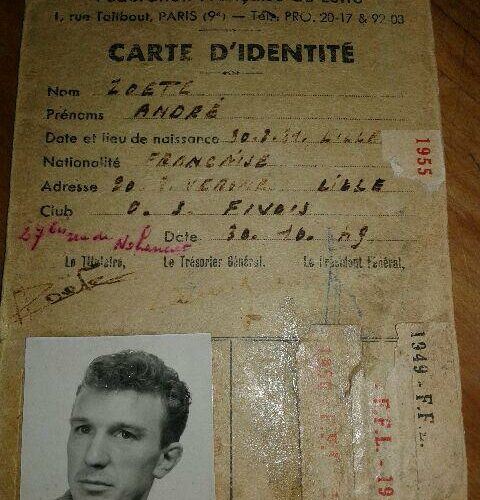 1, rue Taitbout, PARIS (9e) — Tél. PRO. 20-17 & 92-03
CARTE D'IDENTITÉ
Nom ZOETE
Prénoms ANDRÉ
Date et lieu de naissance 30.3.31. LILLE
Nationalité FRANCAISE
Adresse 20 LILLE
Club O. S. FIVOIS
Date 30.10.49
Le Titulaire, Le Trésorier Général, Le Président Général,
1955
1949 - F.F.L.
F.F.L. - 19